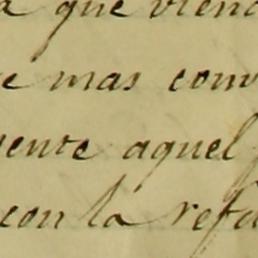 a que vien
e mas conv
ente aquel
con la refo